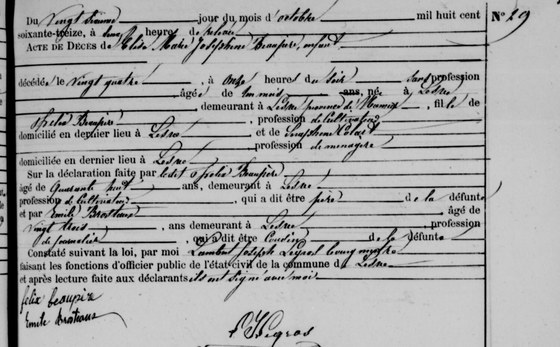 Du Vingt jour du mois d'octobre mil huit cent N° 29
soixante-treize, à heure de
ACTE DE DÉCÈS de Marie Joséphine Beaupère, enfant
décédée le vingt quatre, à onze heures du soir sans profession
âgée de un mois ans, né à Lesve
demeurant à Lesve province de Namur, fille de
Beaupère, profession de cultivateur
domicilié en dernier lieu à Lesve et de
profession de ménagère
domiciliée en dernier lieu à Lesve
Sur la déclaration faite par ledit Beaupère
âgé de Quarante huit ans, demeurant à Lesve
profession de cultivateur, qui a dit être père de la défunte
et par Emile, âgé de
vingt trois, ans demeurant à Lesve, profession
de journalier, qui a dit être de la défunte
Constaté suivant la loi, par moi Lambert Joseph Legros bourgmestre
faisant les fonctions d'officier public de l'état-civil de la commune de Lesve
et après lecture faite aux déclarants ils ont signé avec moi
felix beaupère
Emile
Legros